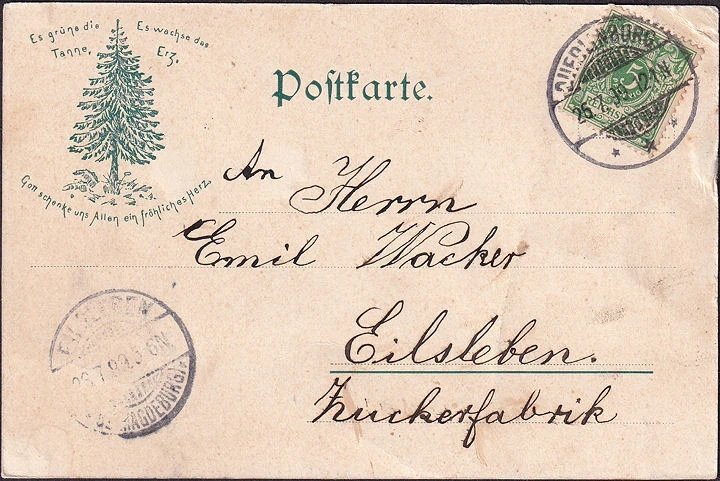 Es grüne die Es wachse das
Tanne, Erz,
Gott schenke uns Allen ein fröhliches Herz.
Postkarte.
QUEDLINBURG
5
An Herrn
Emil Wacker
Eilsleben.
Zuckerfabrik
EILSLEBEN
MAGDEBURG)